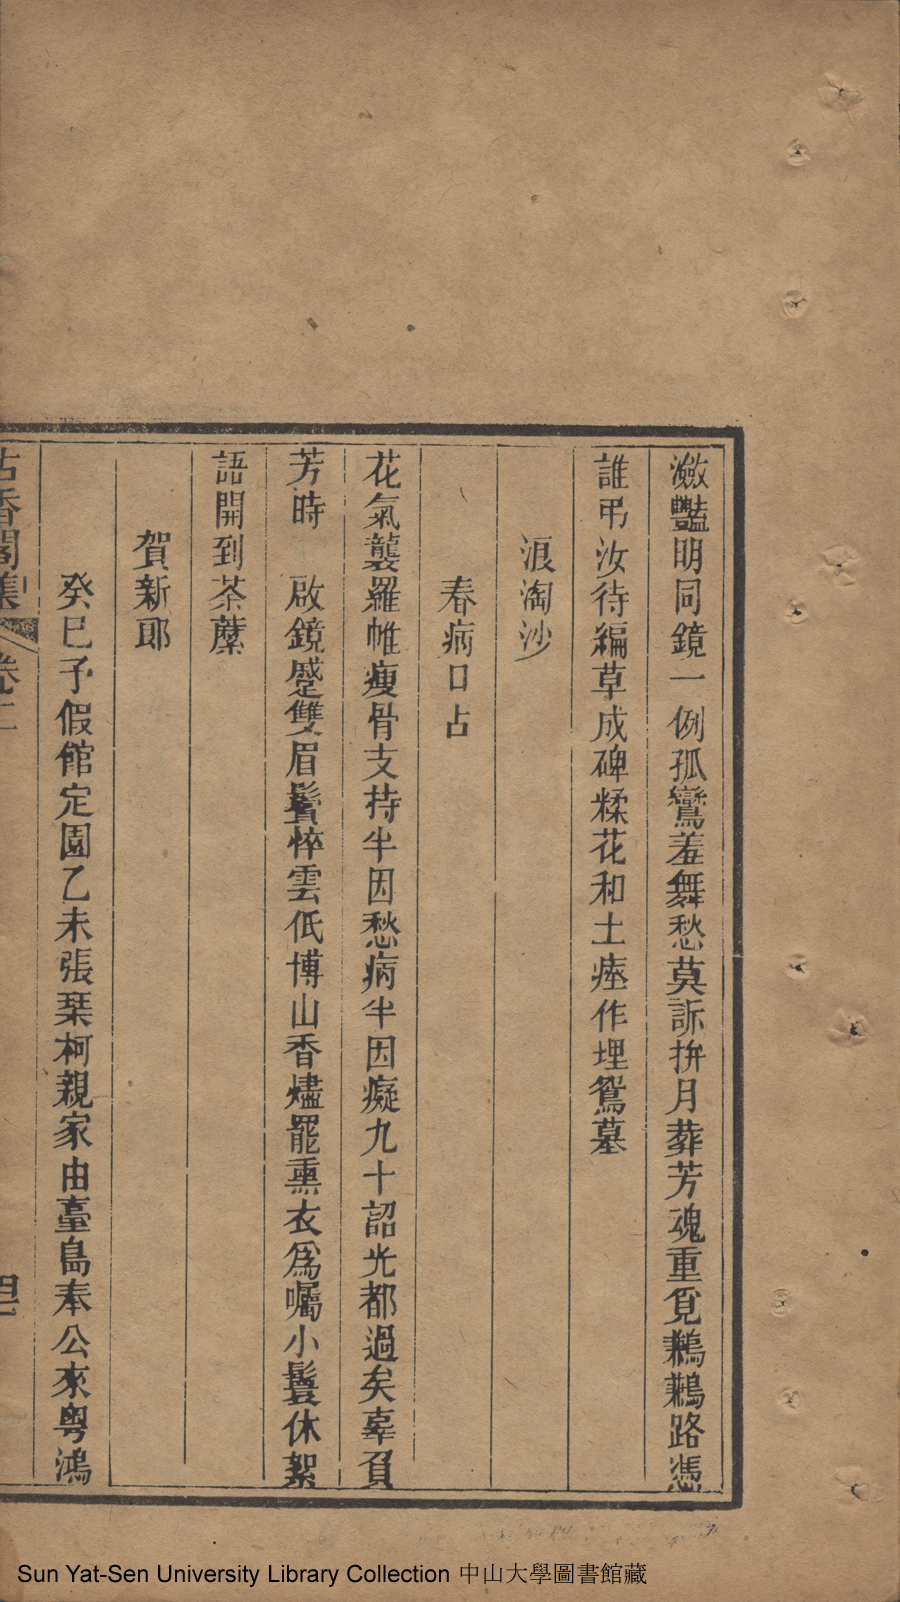 瀲豔明同鏡一例孤鸞羞舞愁莫訴拚月葬芳魂重覓鶼鶼路憑
誰弔汝待編草成碑糅花和土瘞作埋鴛墓
浪淘沙
春病口占
花氣襲羅帷瘦骨支持半因愁病半因癡九十韶光都過矣辜負
芳時　啟鏡蹙雙眉鬢悴雲低博山香燼罷熏衣爲囑小鬟休絮
語開到荼蘼
賀新郎
癸巳予假館定園乙未張琹柯親家由臺島奉公來粤鴻
古香閣集　卷二　四
Sun Yat-Sen University Library Collection 中山大學圖書館藏